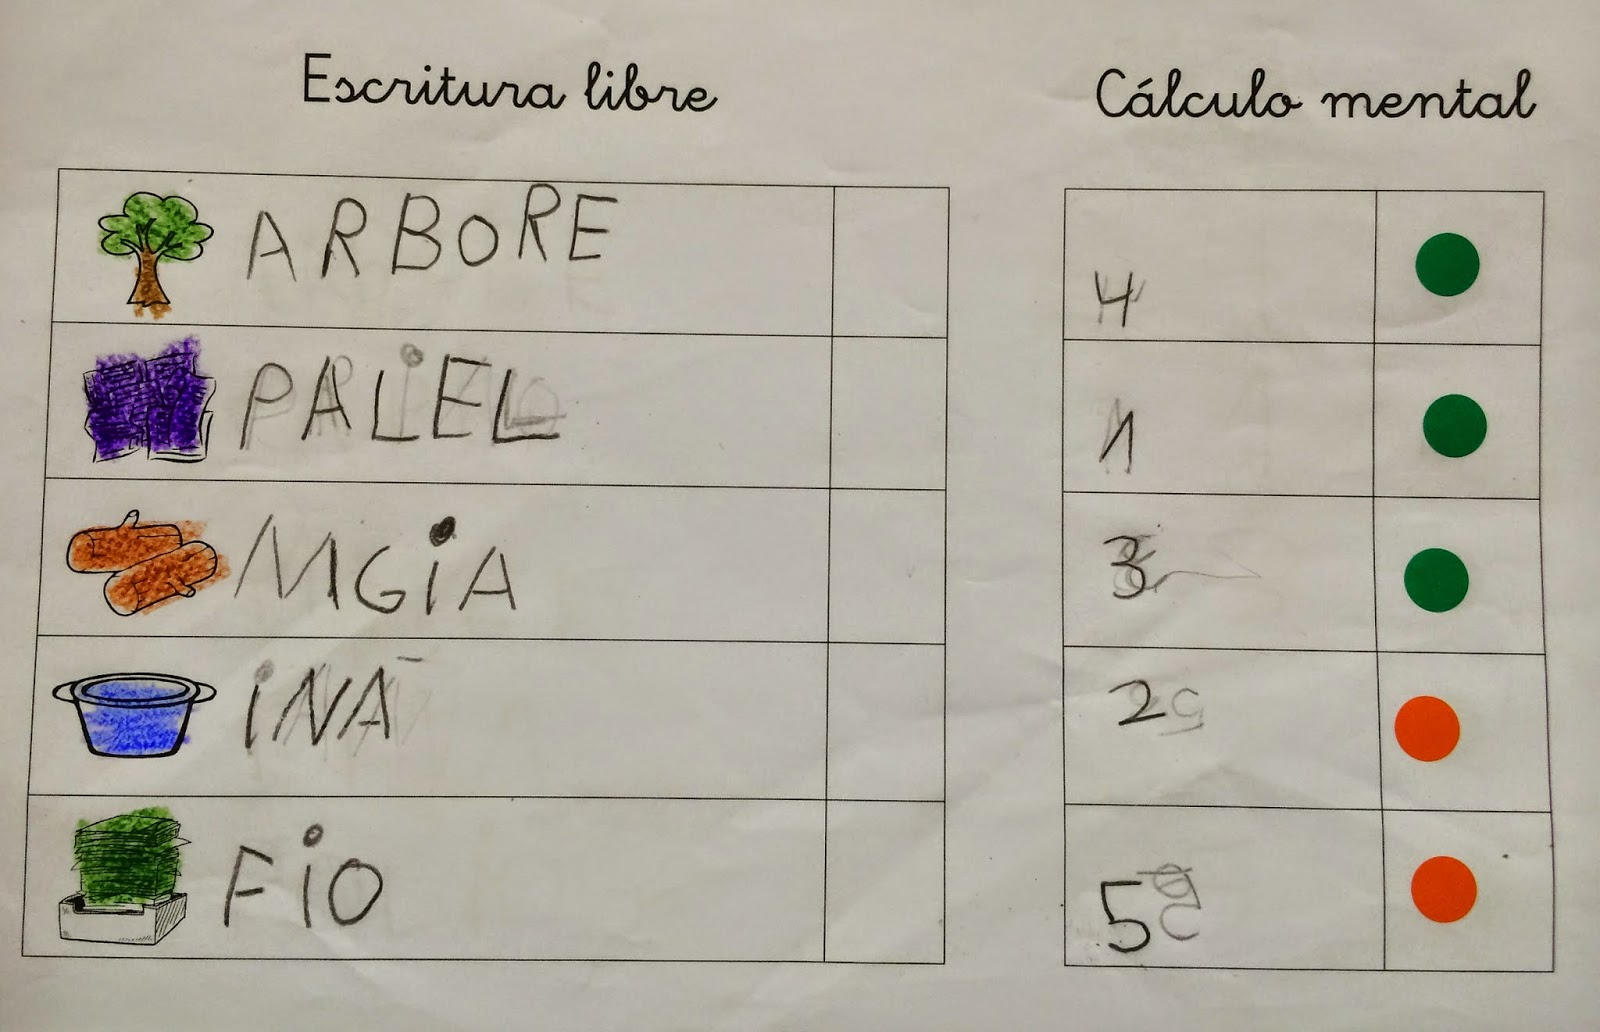 Escritura libre
Cálculo mental
ARBORE
PALEL
MGiA
iNA
FiO
4
1
3
2
5